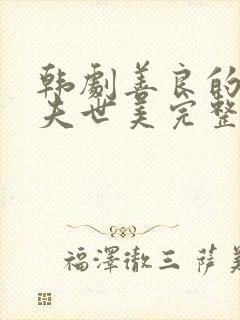 韩劇善良的
夫世美完整
福澤徹三 萨美